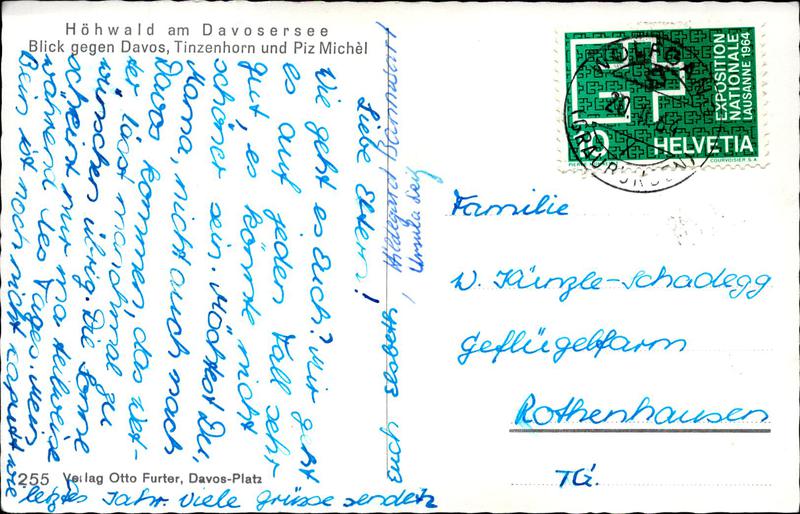 Höhwald am Davosersee
Blick gegen Davos, Tinzenhorn und Piz Michèl
Liebe Eltern!
Wie geht es Euch? Mir geht
es auf jeden Fall sehr
gut, es könnte nicht
schöner sein. Möchtest Du,
Mama, nicht auch nach
Davos kommen, das Wet-
ter lässt manchmal zu
wünschen übrig. Die Sonne
scheint nur na teilweise
während des Tages. Mein
Bein ist noch nicht kaputt wie
letztes Jahr. Viele Grüsse sendet
Euch Elsbeth,
Hildegard
Ursula
255 Verlag Otto Furter, Davos-Platz
EXPOSITION
NATIONALE
LAUSANNE 1964
HELVETIA
COURVOISIER S.A.
WOLFGANG
20
(GRAUBÜNDEN)
Familie
W. Künzle-Schadegg
Geflügelfarm
Rothenhausen
TG.